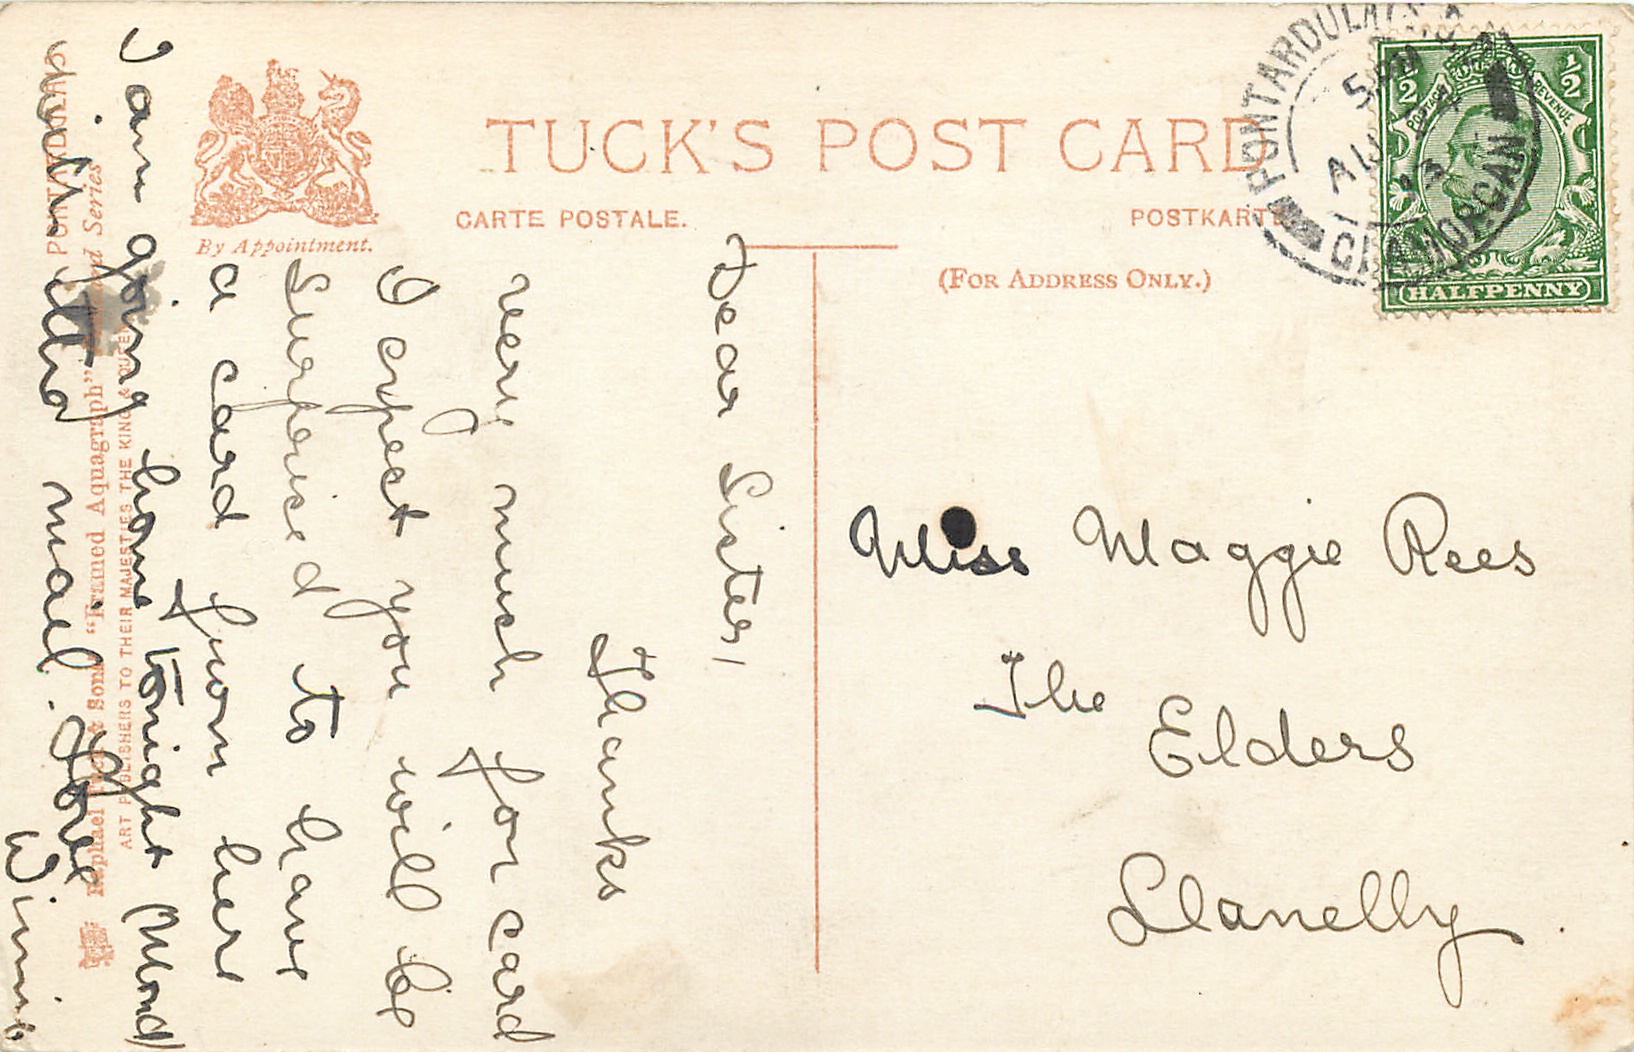 TUCK'S POST CARD
CARTE POSTALE.
POSTKARTE
(FOR ADDRESS ONLY.)
By Appointment.
PONTARDULAIS
5 PM
AU
13
GLAMORGAN
POSTAGE
REVENUE
1/2
1/2
HALFPENNY
Miss Maggie Rees
The
Elders
Llanelly
Dear Sister,
Thanks
very much for card
I expect you will be
surprised to have
a card from her
I am going home tonight (Mond)
with the mail. Love
Winnie
PONTARDULAIS
Raphael & Sons "Framed Aquagraph" Series
ART PUBLISHERS TO THEIR MAJESTIES THE KING & QUEEN